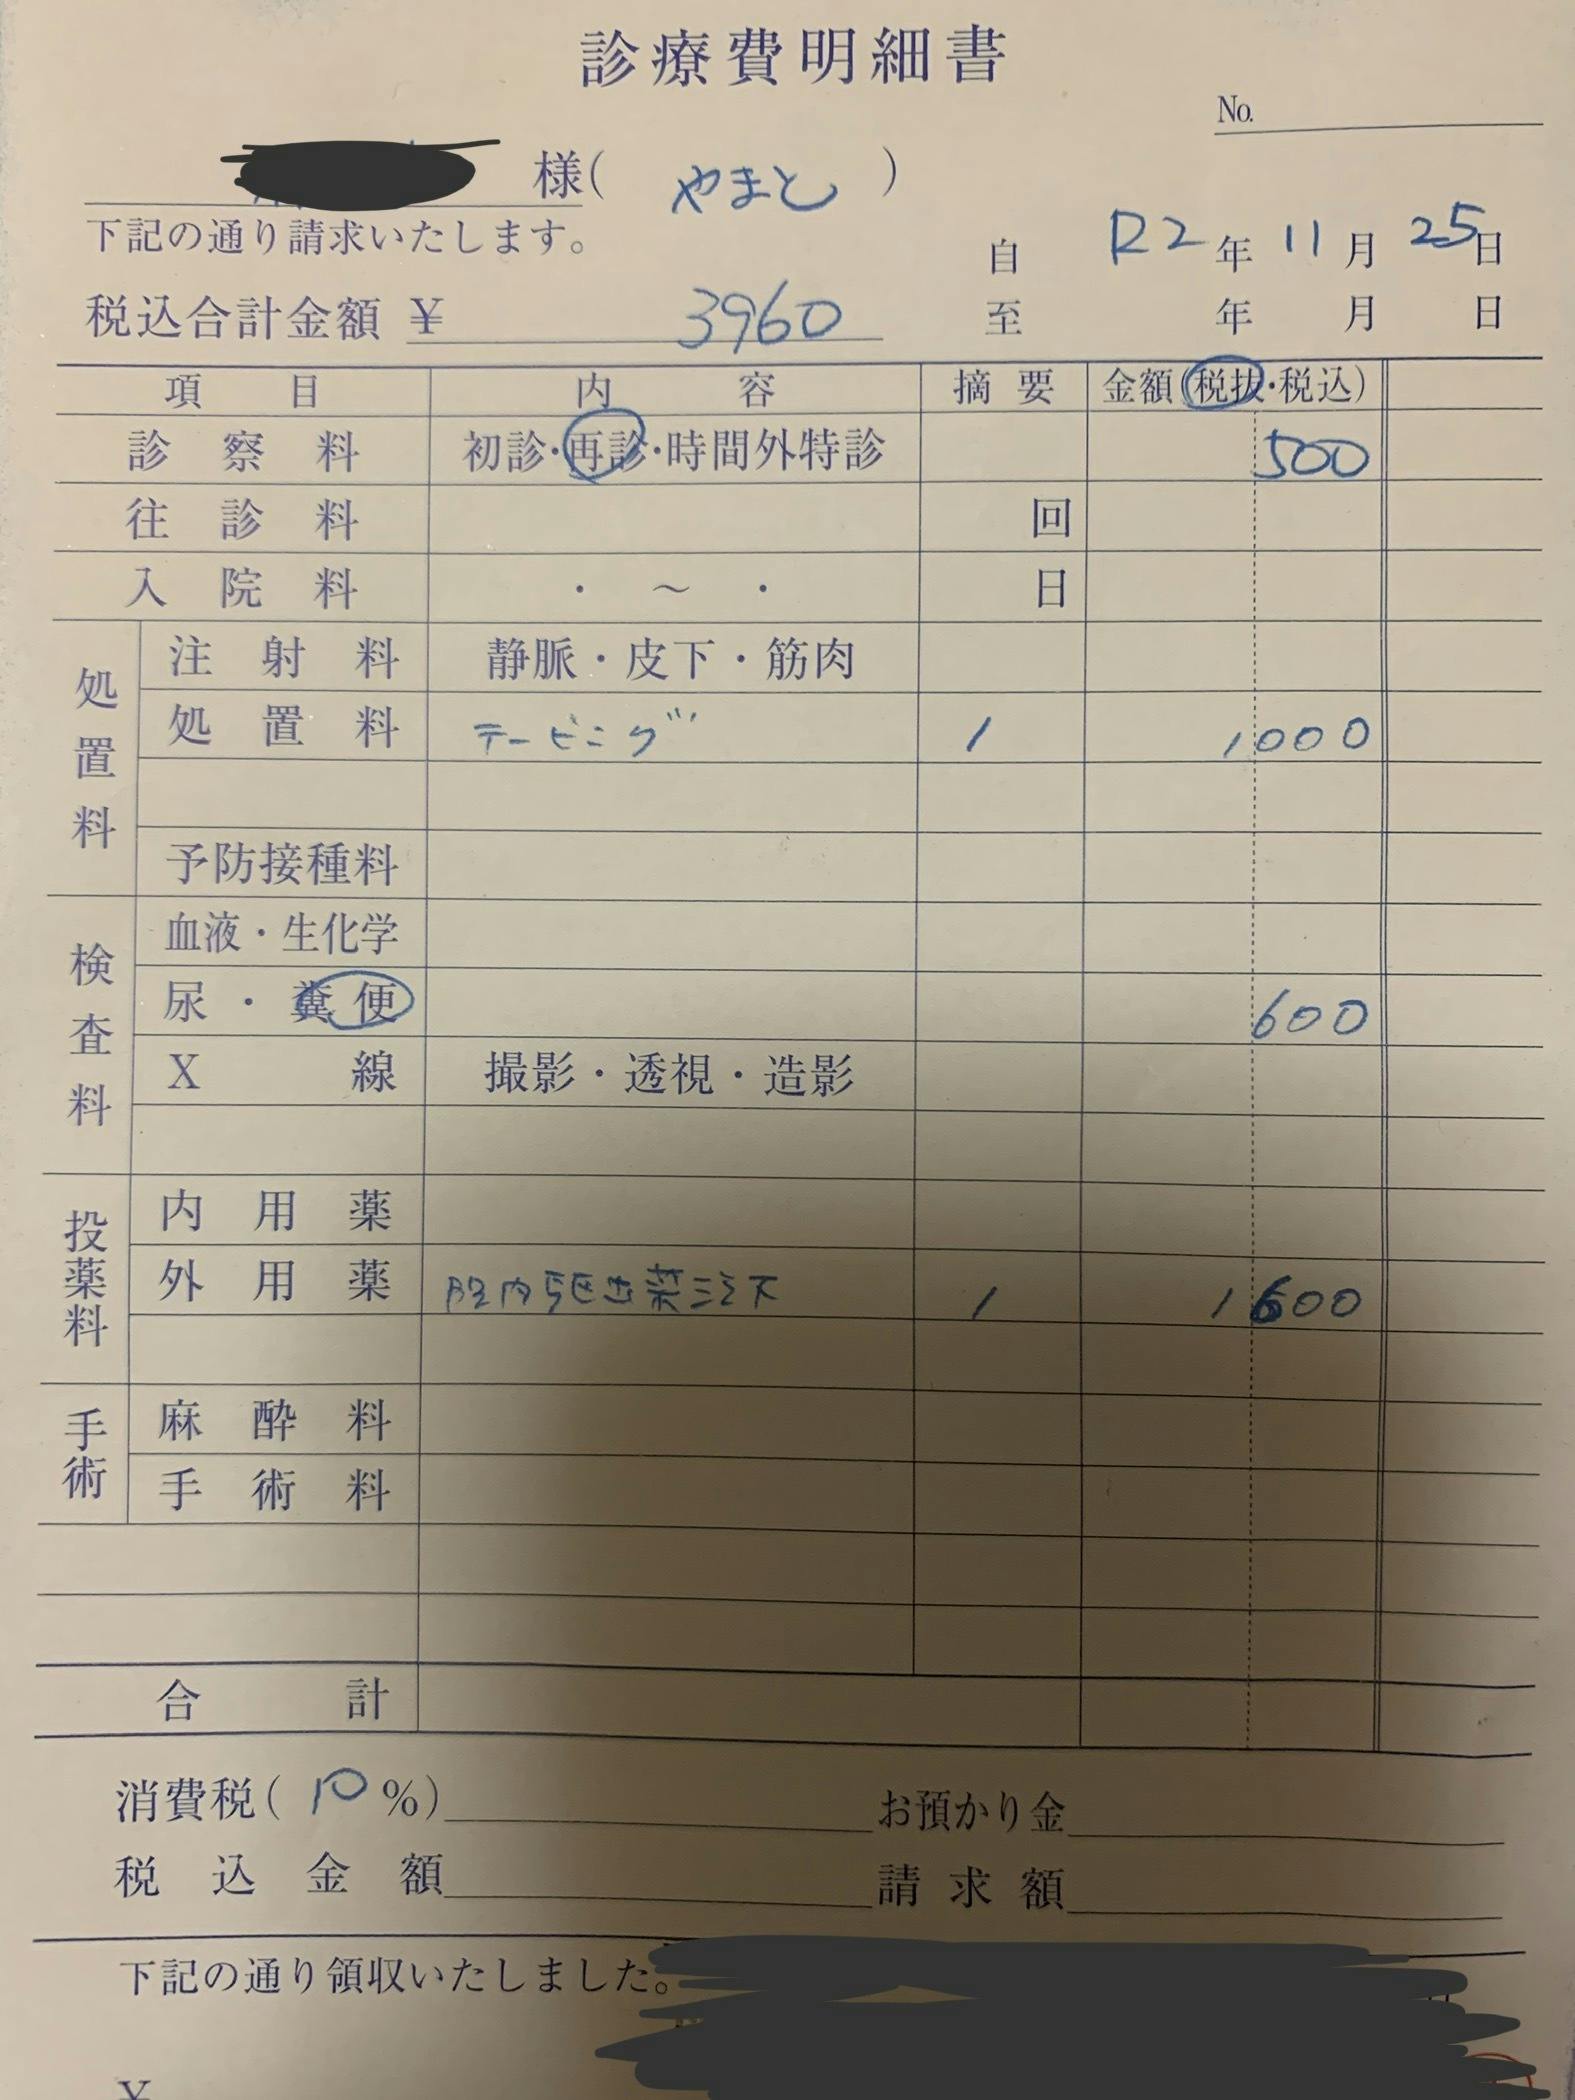 診療費明細書
No.
様( やまと )
下記の通り請求いたします。
自 R2年 11月 25日
税込合計金額 ¥ 3960
至 年 月 日
項目 内容 摘要 金額(税抜・税込)
診察料 初診・再診・時間外特診 500
往診料 回
入院料 ・ ～ ・ 日
処置料
注射料 静脈・皮下・筋肉
処置料 テーピング 1 1000
予防接種料
検査料
血液・生化学
尿・糞便 600
X線 撮影・透視・造影
投薬料
内用薬
外用薬 腔内駆虫薬滴下 1 1600
手術
麻酔料
手術料
合計
消費税( 10 %) お預かり金
税込金額 請求額
下記の通り領収いたしました。
¥